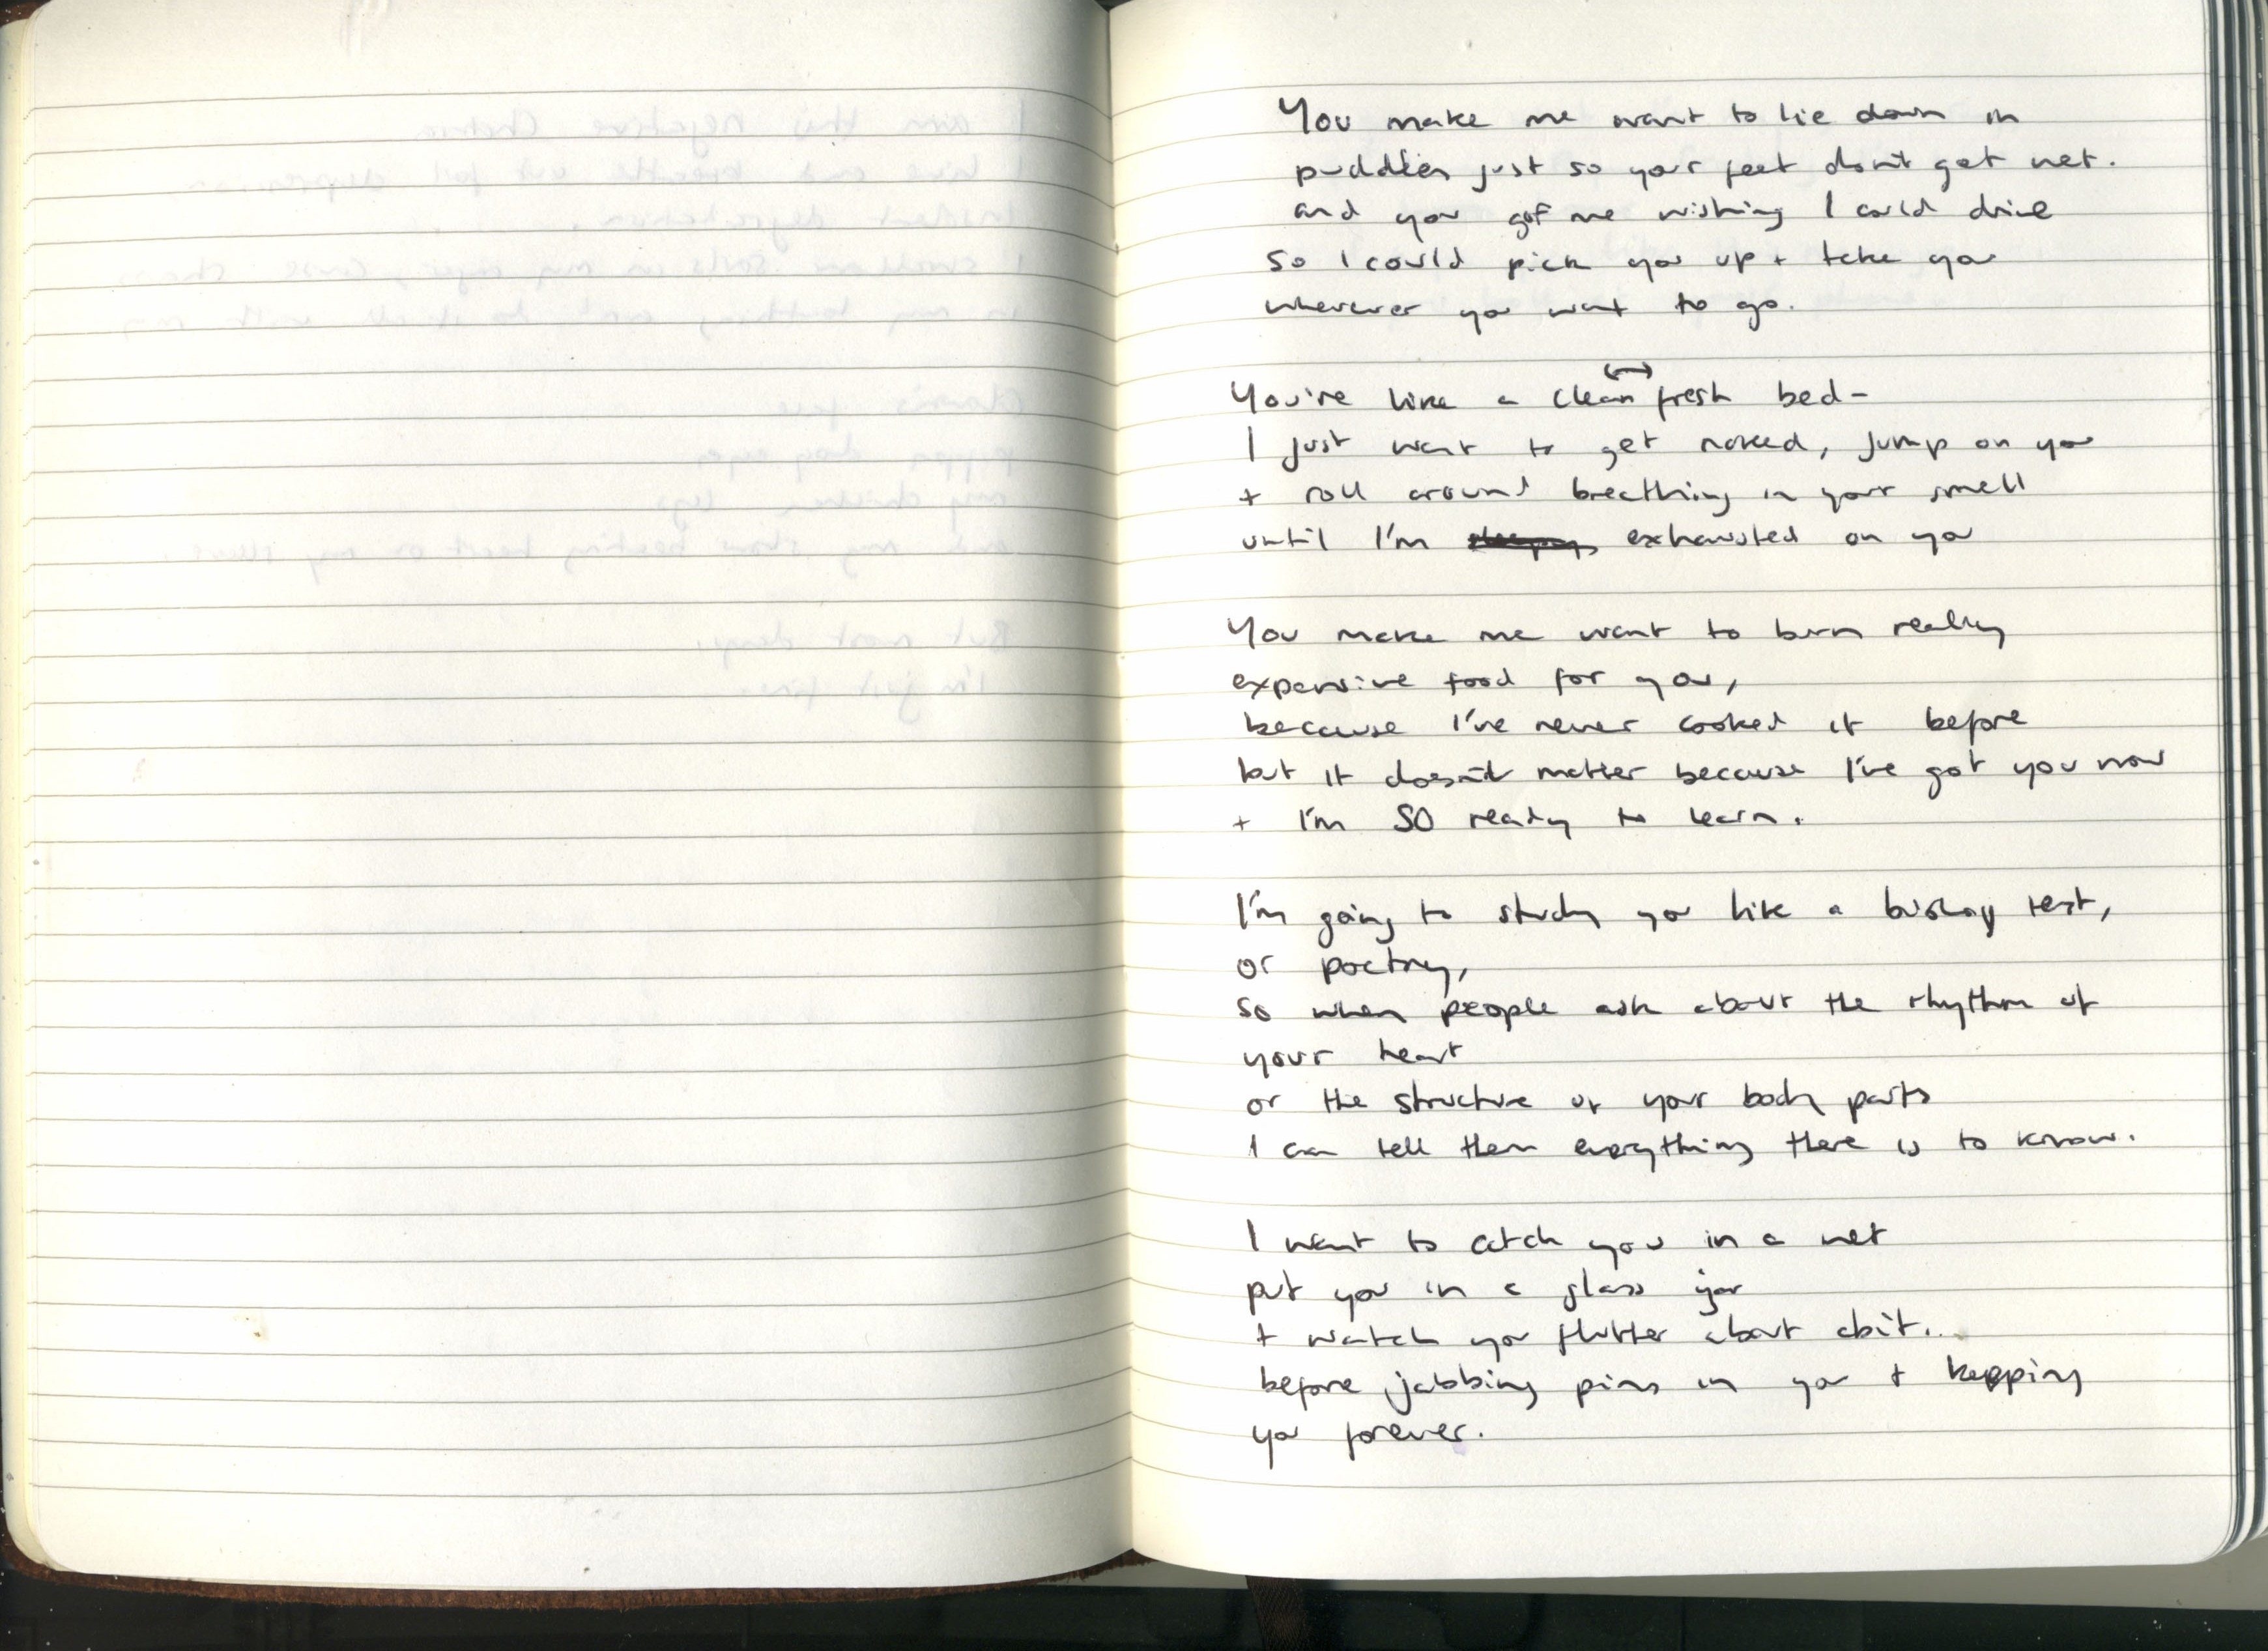 You make me want to lie down in
puddles just so your feet don't get wet.
and you got me wishing I could drive
so I could pick you up + take you
wherever you want to go.
You're like a clean fresh bed-
I just want to get naked, jump on you
+ roll around breathing in your smell
until I'm exhausted on you
You make me want to burn really
expensive food for you,
because I've never cooked it before
but it doesn't matter because I've got you now
+ I'm SO ready to learn.
I'm going to study you like a biology test,
or poetry,
so when people ask about the rhythm of
your heart
or the structure of your body parts
I can tell them everything there is to know.
I want to catch you in a net
put you in a glass jar
+ watch you flutter about abit..
before jabbing pins in you + kepping
you forever.